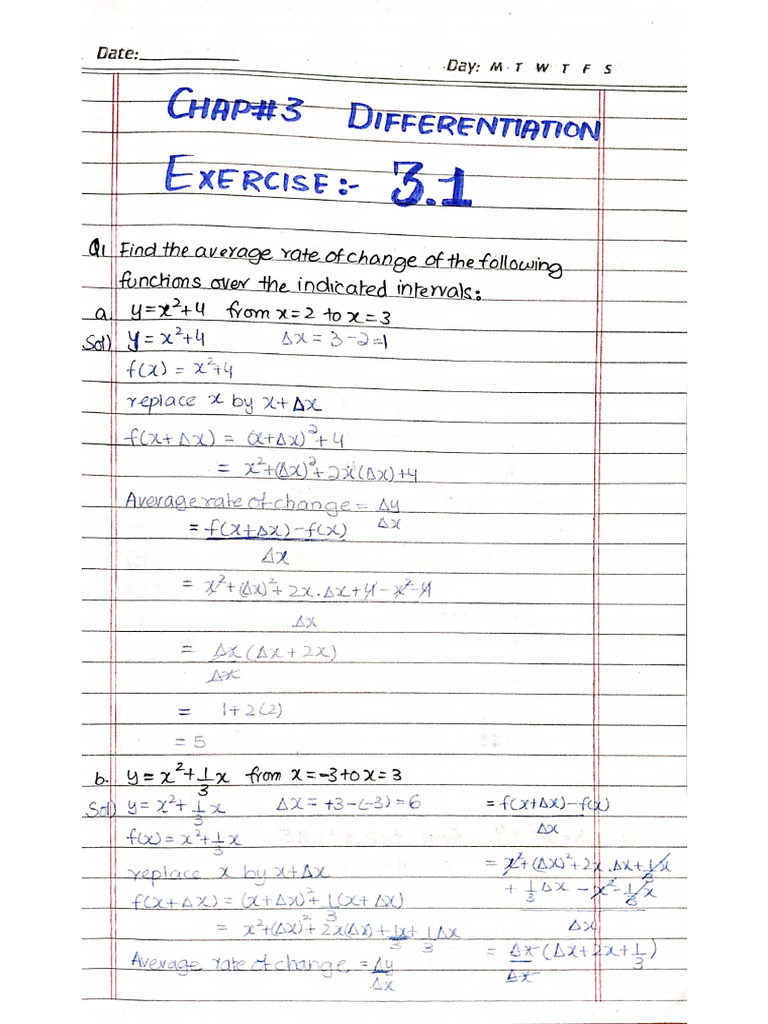 Date:
Day: M T W T F S
CHAP#3 DIFFERENTIATION
EXERCISE:- 3.1
Q1 Find the average rate of change of the following
functions over the indicated intervals:
a. y = x²+4 from x=2 to x=3
Sol) y = x²+4 Δx = 3-2=1
f(x) = x²+4
replace x by x+Δx
f(x+Δx) = (x+Δx)²+4
= x²+(Δx)²+2x(Δx)+4
Average rate of change = Δy
Δx
= f(x+Δx)-f(x)
Δx
= x²+(Δx)²+2x.Δx+4-x²-4
Δx
= Δx(Δx+2x)
Δx
= 1+2(2)
= 5
b. y = x²+1/3 x from x=-3 to x=3
Sol) y = x²+1/3 x Δx = +3-(-3)=6
f(x) = x²+1/3 x
replace x by x+Δx
f(x+Δx) = (x+Δx)²+1/3(x+Δx)
= x²+(Δx)²+2x(Δx)+1/3 x+1/3 Δx
Average rate of change = Δy
Δx
= f(x+Δx)-f(x)
Δx
= x²+(Δx)²+2x.Δx+1/3 x
+ 1/3 Δx - x² - 1/3 x
Δx
= Δx(Δx+2x+1/3)
Δx